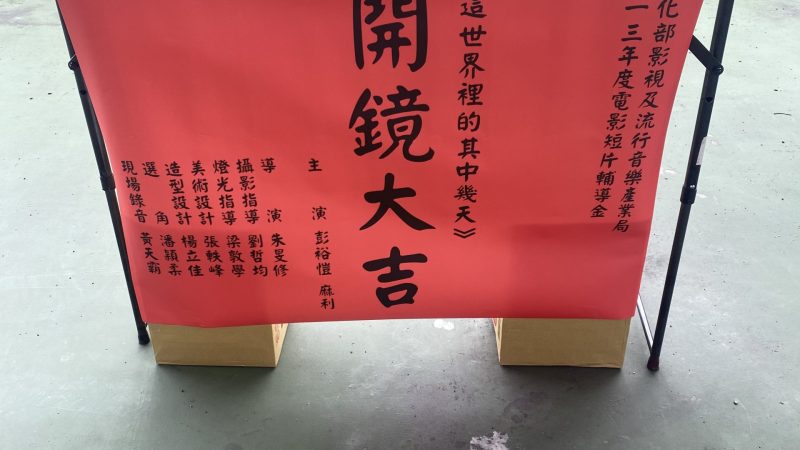 化部影視及流行音樂產業局
一三年度電影短片輔導金
這世界裡的其中幾天》
開鏡大吉
主演 彭裕愷 麻利
導演 朱旻修
攝影指導 劉哲均
燈光指導 梁敦學
美術設計 張軼峰
造型設計 楊立佳
選角 潘穎柔
現場錄音 黃天霸